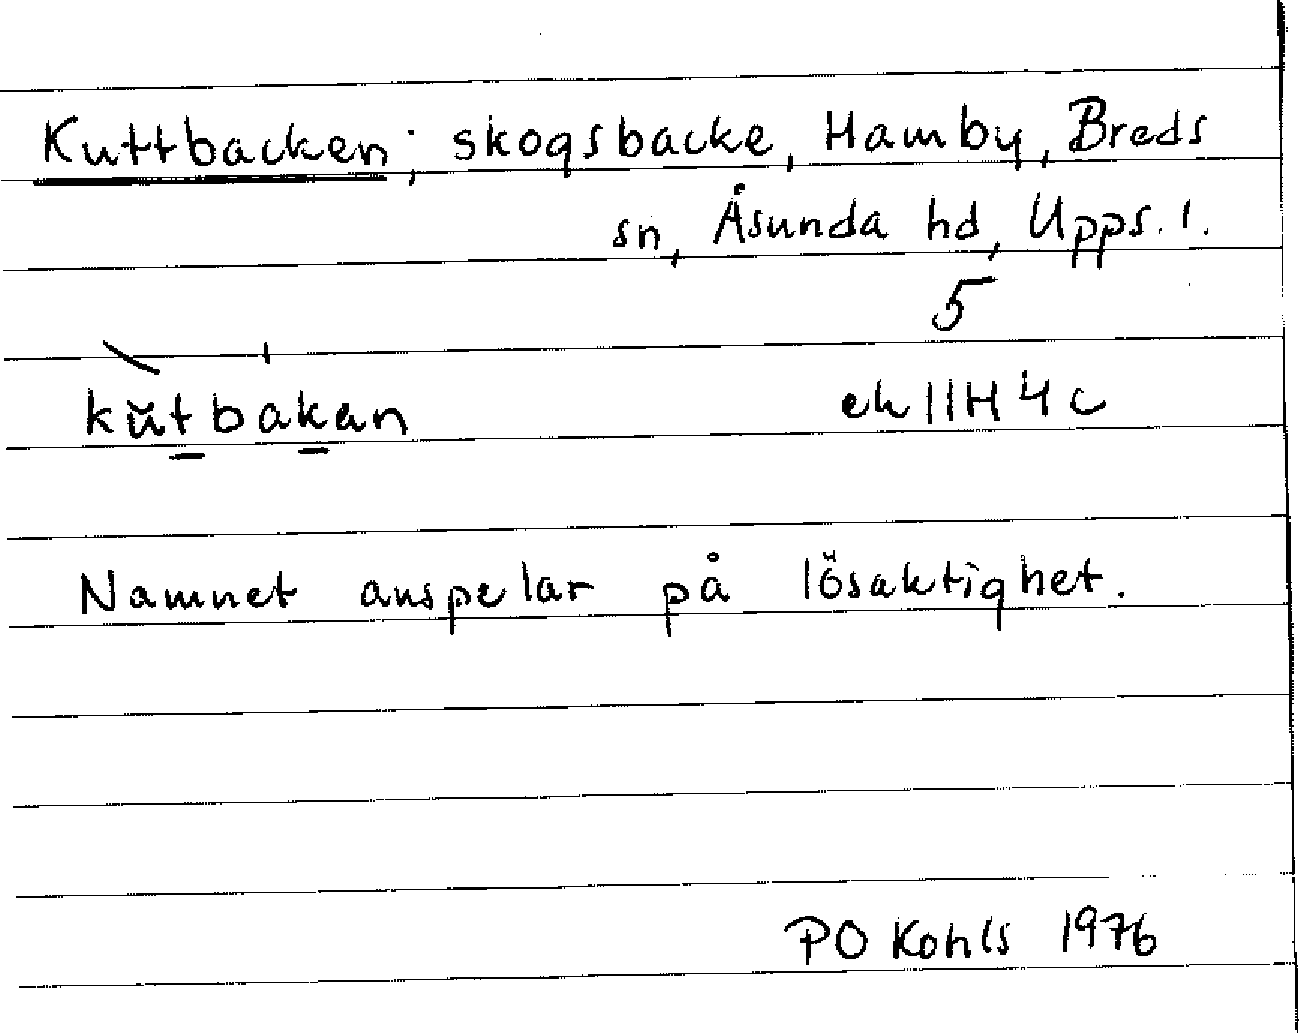 Kuttbacken; skogsbacke, Hamby, Breds
sn, Åsunda hd, Upps. l.
5
kŭt̲bak̲an
ek 11H4c
Namnet anspelar på lösaktighet.
PO Kohls 1976